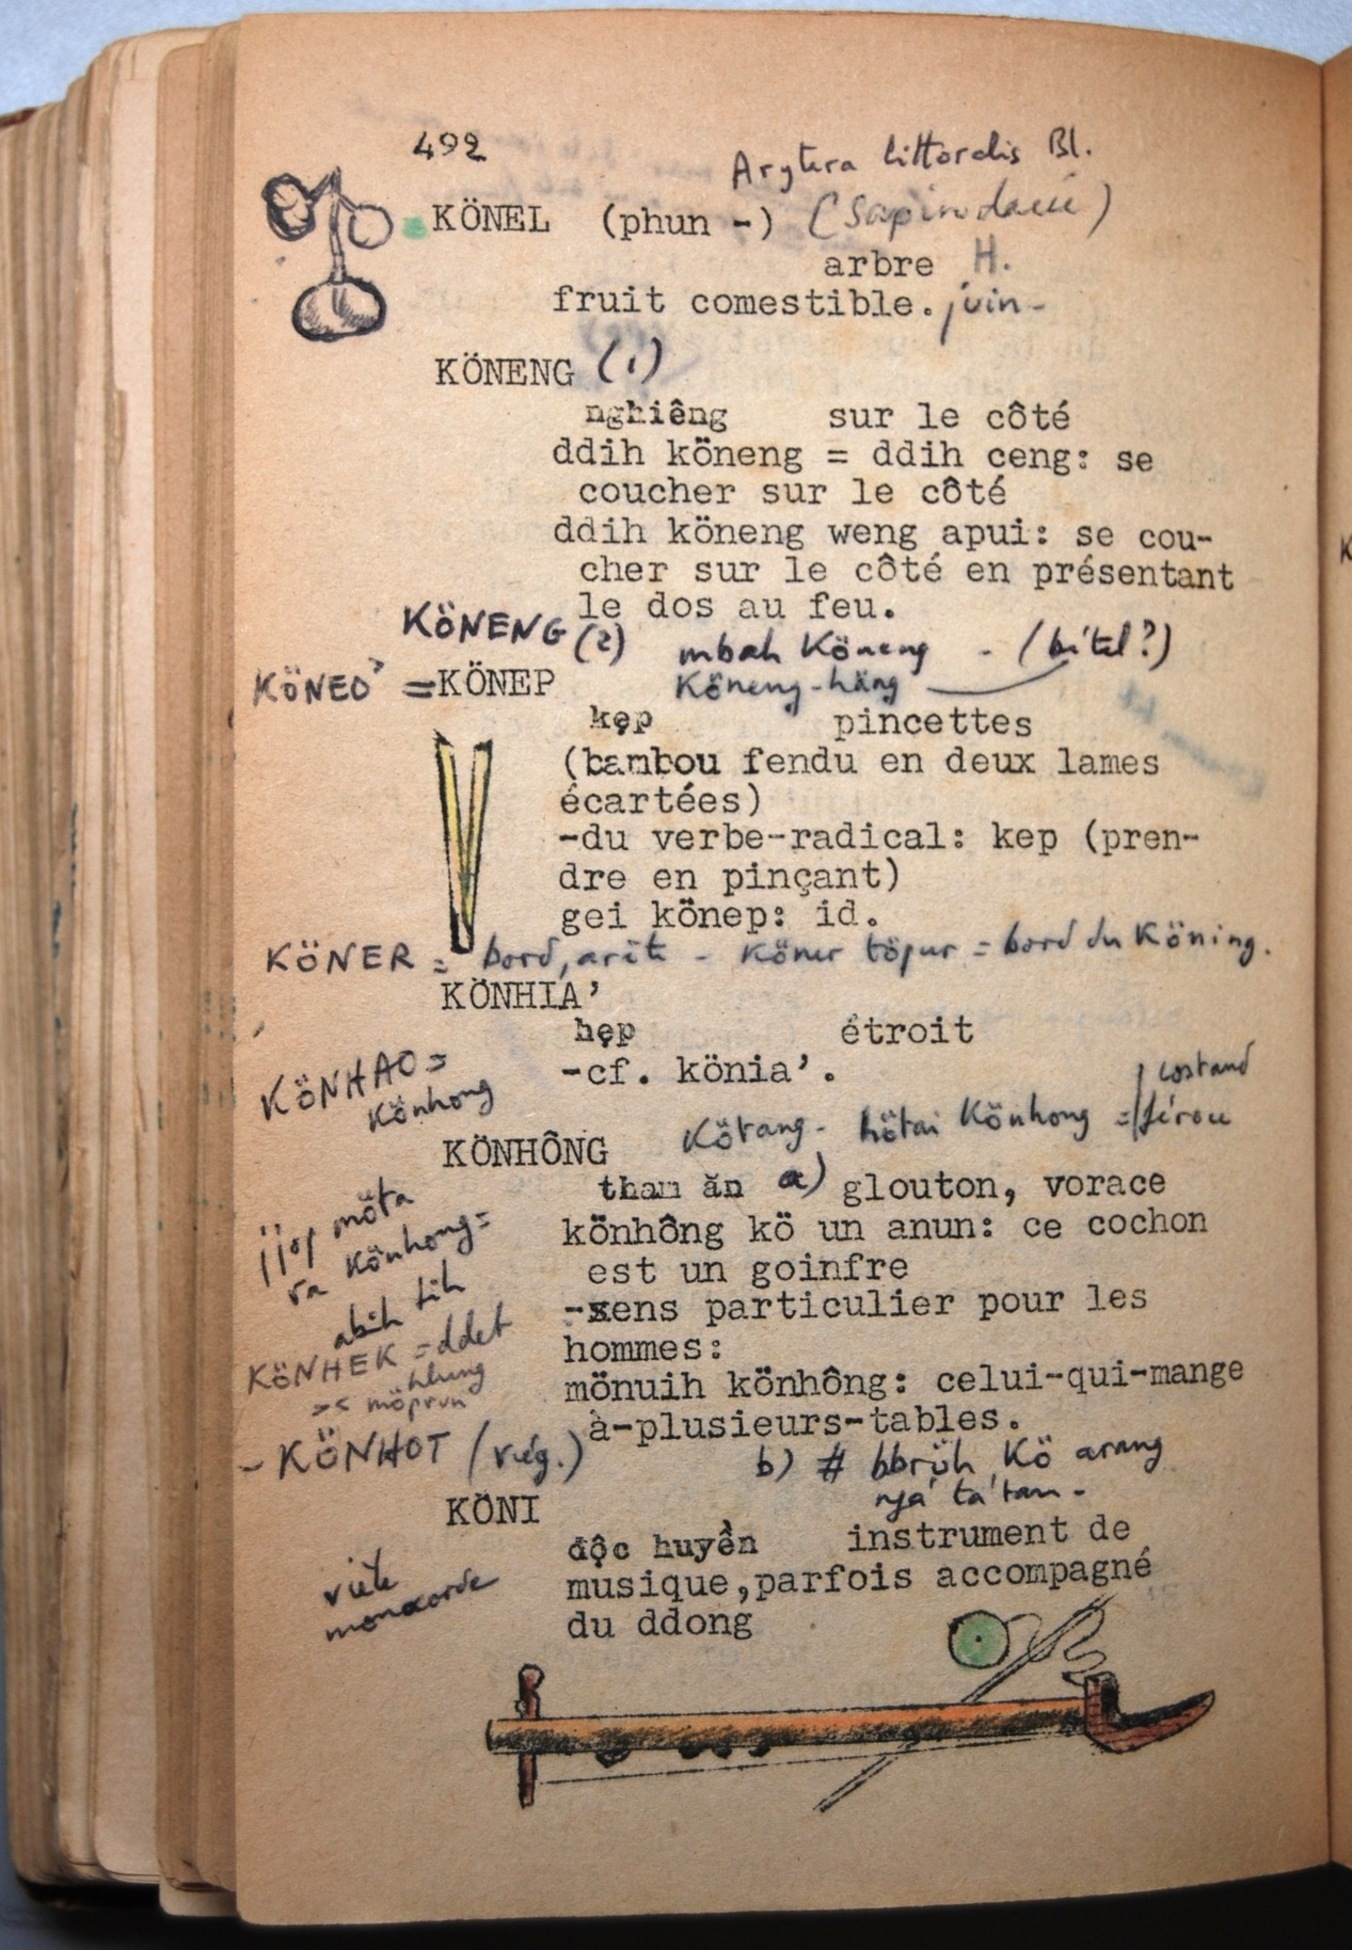 492
Arytera littoralis Bl.
KÖNEL (phun -) (Sapindacée)
arbre H.
fruit comestible. juin-
KÖNENG (1)
nghiêng sur le côté
ddih köneng = ddih ceng: se
coucher sur le côté
ddih köneng weng apui: se cou-
cher sur le côté en présentant
le dos au feu.
KÖNENG (2) mbah Köneng - (bitel?)
KÖNEO' = KÖNEP Köneng-häng
kẹp pincettes
(bambou fendu en deux lames
écartées)
-du verbe-radical: kep (pren-
dre en pinçant)
gei könep: id.
KÖNER = bord, arête - Köner töpur = bord du Köning.
KÖNHIA'
hẹp étroit
-cf. könia'.
KÖNHAO =
Könhong
costaud
Kötang - hötai Könhong = férou
KÖNHÔNG
tham ăn a) glouton, vorace
könhông kö un anun: ce cochon
est un goinfre
-sens particulier pour les
hommes:
mönuih könhông: celui-qui-mange
à-plusieurs-tables.
möta
ra Könhong =
abih tih
KÖNHEK = ddet
hlung
>< möprun
- KÖNHOT (vég.)
b) # bbrüh Kö arang
ngá ta'tan -
KÖNI
độc huyền instrument de
musique,parfois accompagné
du ddong
vièle
monocorde